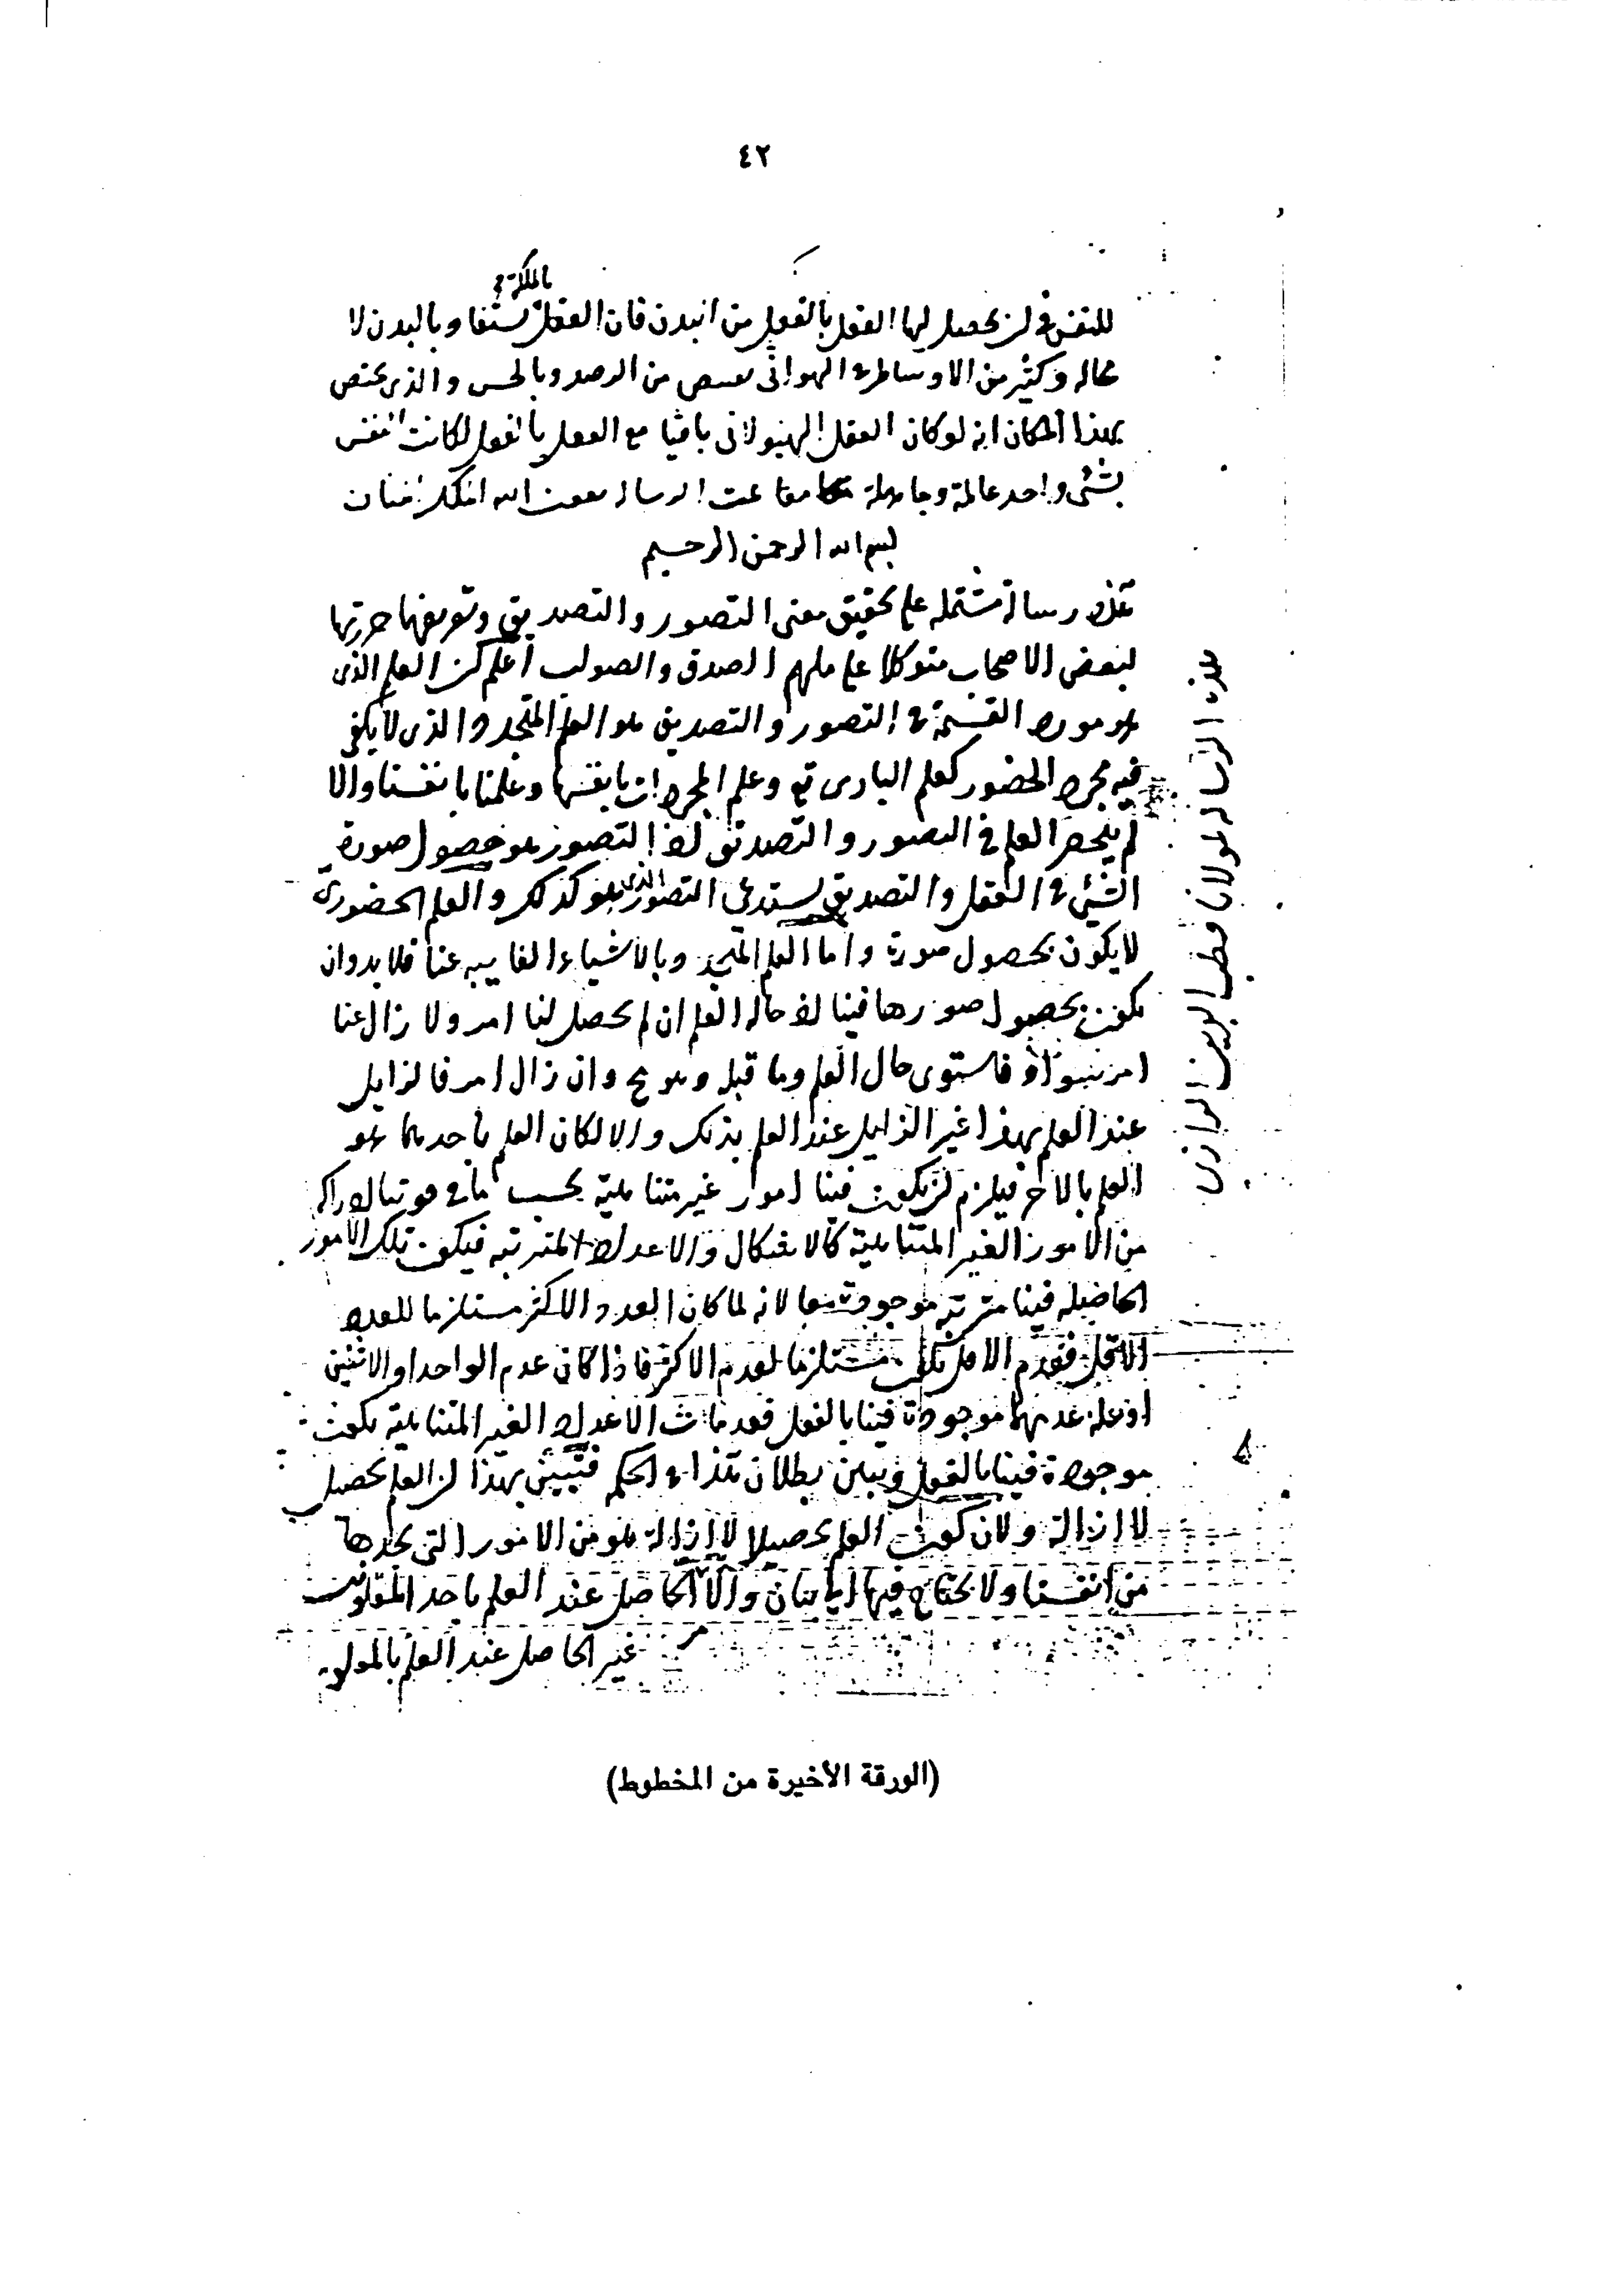 ٤٢
بالملكة
للنفس في أن يحصل لها العقل بالفعل من البدن فان العقل يستفاد بالبدن لا
محاله وكثير من الاوساط في من الرصد وبالحس والذي يختص
بهذا المكان انه لو كان العقل الهيولاني باقيا مع العقل بالفعل لكانت النفس
بشئ واحد عالمة وجاهلة معا تمت الرساله بعون الله الملك المنان
بسم الله الرحمن الرحيم
هذه رسالة مشتمله على تحقيق معنى التصور والتصديق وتعريفهما حررتها
لبعض الاصحاب متوكلا على ملهم الصدق والصواب اعلم أن العلم الذى
هو مورد القسمة في التصور والتصديق هو العلم المتجدد الذى لا يكفى
فيه مجرد الحضور كعلم البارى تع وعلم المجردات بانفسها وعلمنا بانفسنا والا
لم ينحصر العلم في التصور والتصديق اذ التصور هو حصول صورة
الشئ في العقل والتصديق يستدعى التصور الذى هو كذلك والعلم الحضورى
لا يكون بحصول صورة واما العلم المتجدد بالاشياء الغايبه عنا فلا بد وان
يكون بحصول صورها فينا اذ حاله العلم ان لم يحصل لنا امر ولا زال عنا
امر فاستوى حال العلم وما قبله وهو مح وان زال امر فالزايل
عند العلم بهذا غير الزايل عند العلم بذلك والا لكان العلم باحديهما هو
العلم بالاخر فيلزم أن يكون فينا امور غير متناهية بحسب ما في قوتنا ادراكه
من الامور الغير المتناهية كالاشكال والاعداد المترتبه فيكون تلك الامور
الحاصله فينا مترتبه موجودة معا لانه لما كان العدد الاكثر مستلزما للعدد
الاقل فعدم الاقل يكون مستلزما لعدم الاكثر فاذا كان عدم الواحد او الاثنين
او علة عدمهما موجودة فينا بالفعل فعدمات الاعداد الغير المتناهية يكون
موجودة فينا بالفعل وتبين بطلان هذا في الحكم فتبين بهذا أن العلم تحصيل
لا ازالة ولان كون العلم تحصيلا لا ازالة هو من الامور التى نجدها
من انفسنا ولا يحتاج فيها الى بيان والا الحاصل عند العلم باحد المعلومين
غير الحاصل عند العلم بالمعلوم
هذه الرساله لمولانا قطب الدين الرازى
(الورقة الأخيرة من المخطوط)